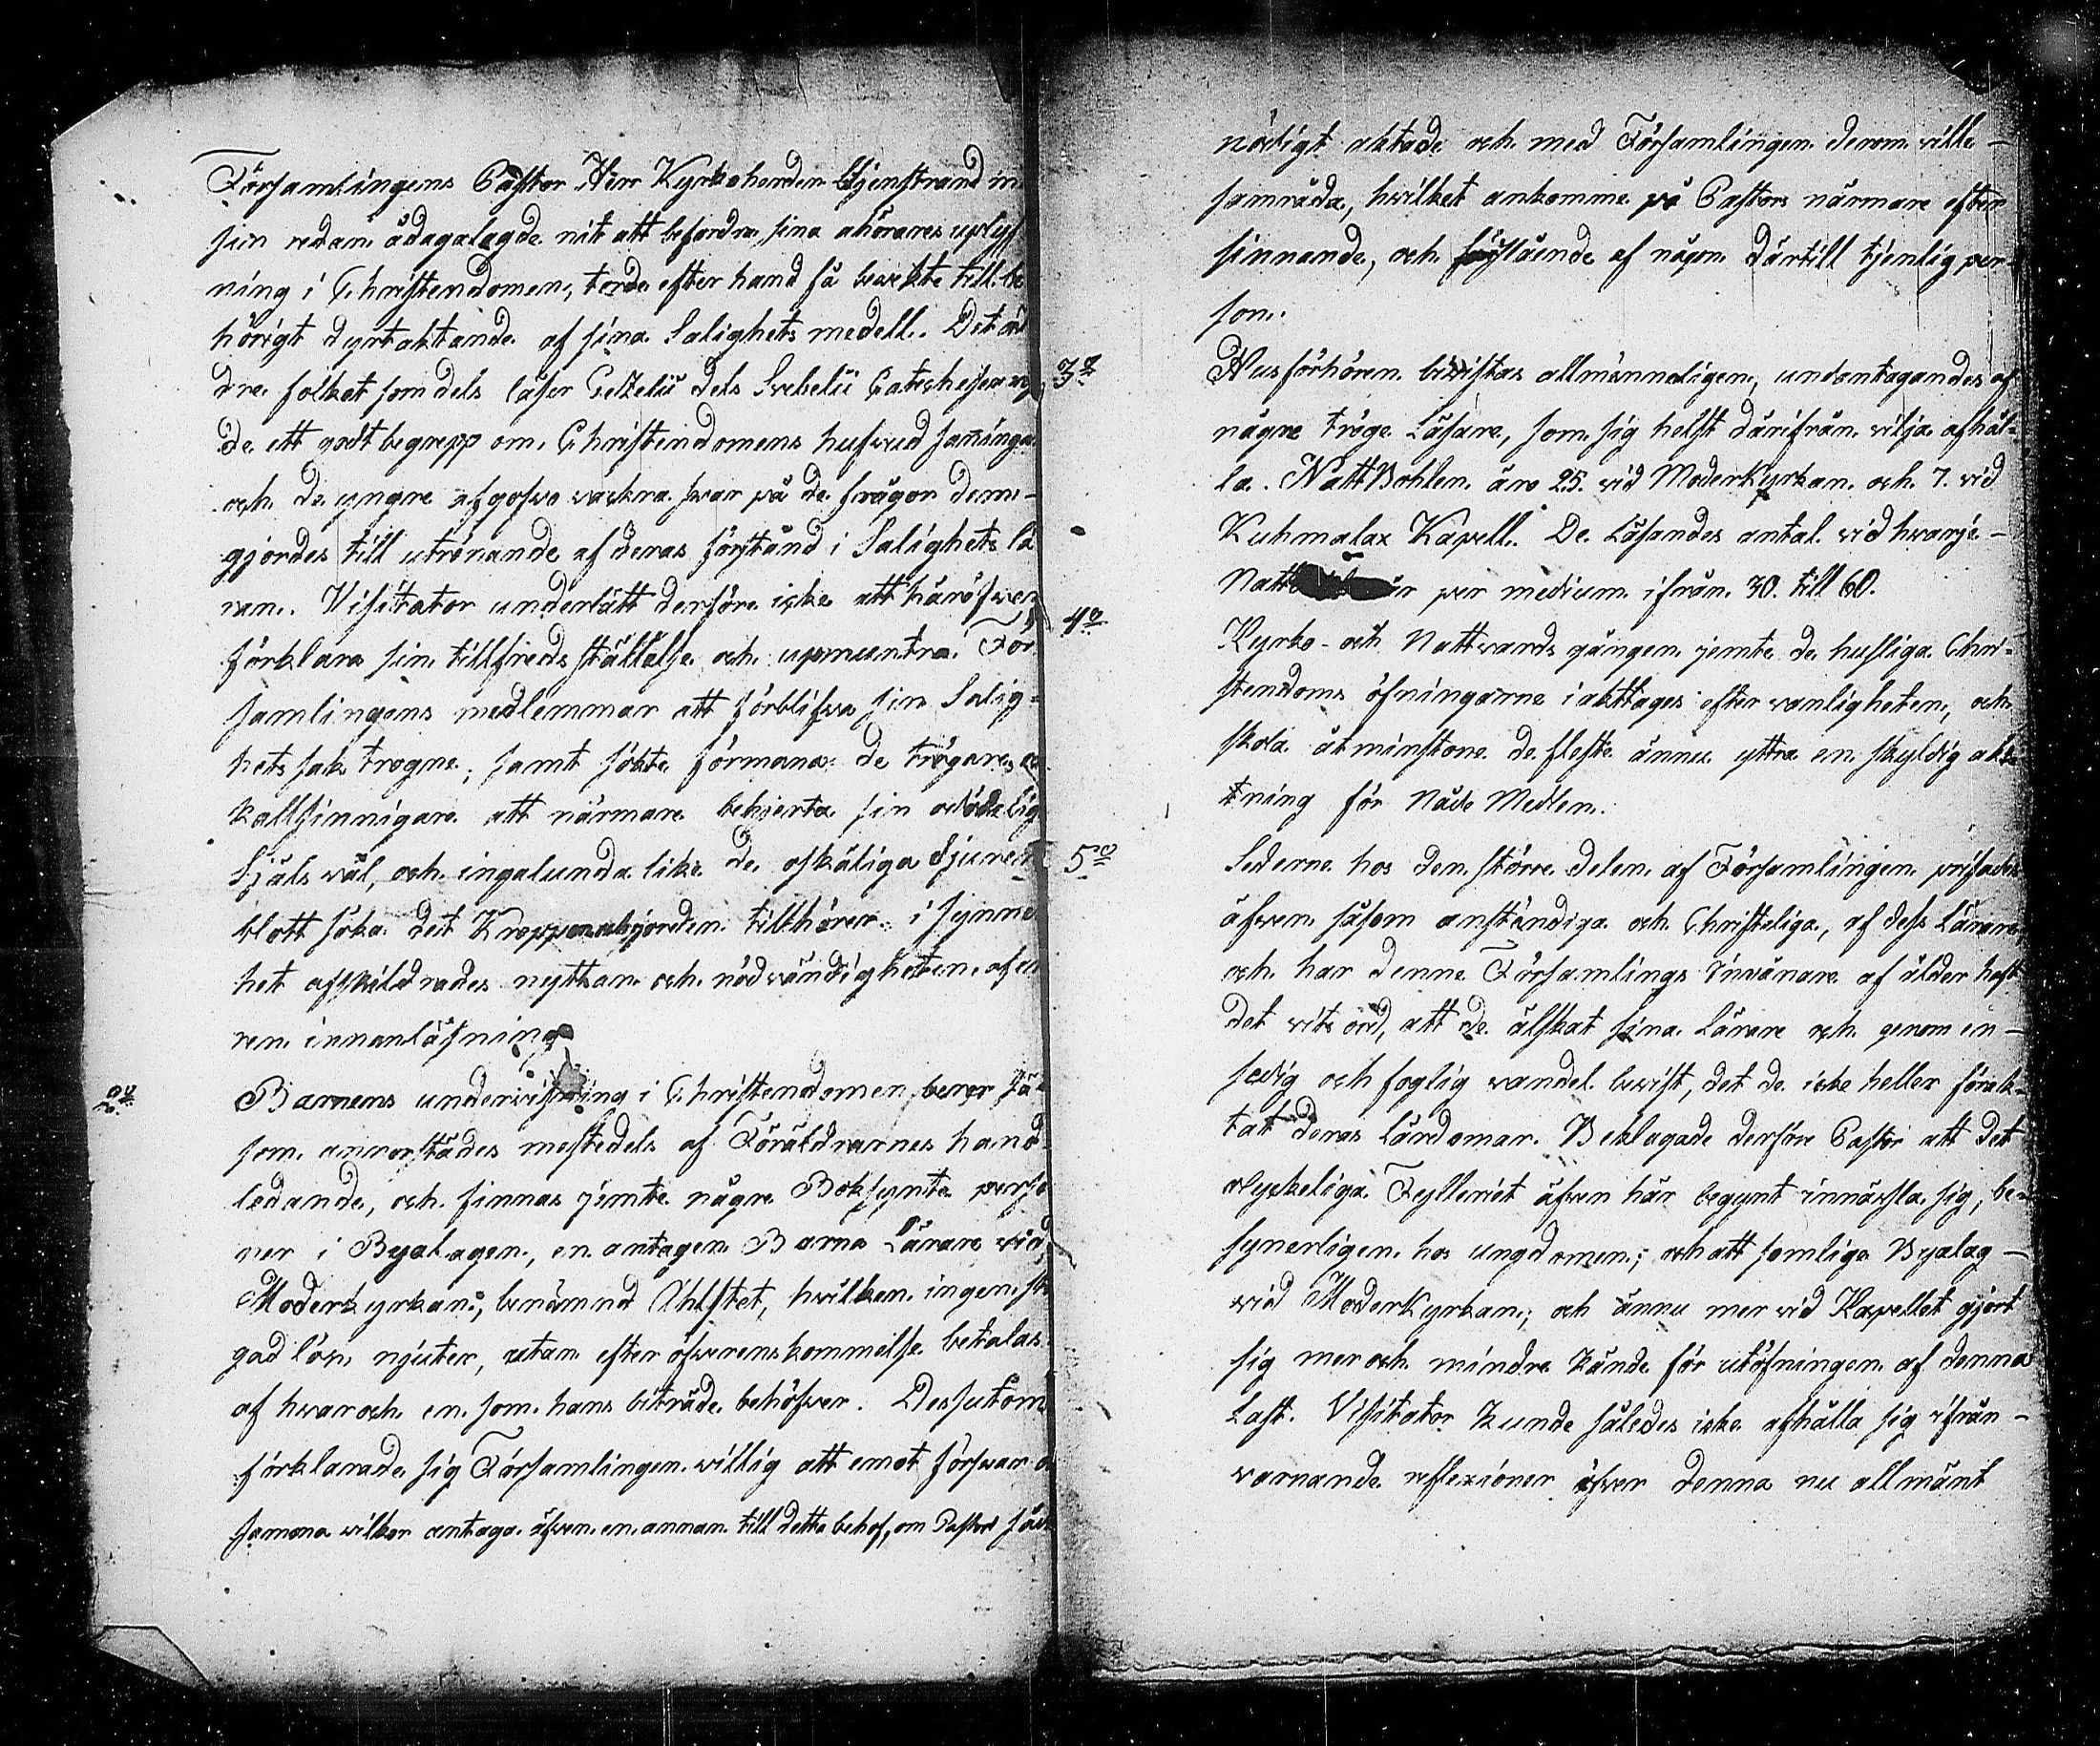 Församlingens Pastor Herr Kyrkoherden Stjenstrand in
sin redan ådagalagde nit att befordra sina åhörares uplys
ning i Christendomen, torde efter hand få bewekte till be
hörigt dyrtaktande af sina Salighets medell. Det äl
dre folket som dels läser Gezelii dels Svebelii Catechesen äg
de ett godt begrepp om Christendomens hufwud saninga
och de yngre afgofwo wackra swar på de frågor dem-
gjordes till utrönande af deras förstånd i Salighets lä
ran. Visitator underlätt derföre icke att häröfwer
förklara sin tillfredsställelse och upmuntra För
samlingens medlemmar att förblifwa sin Salig=
hets sak trogne, samt sökte förmana de trögare, o
kallsinnigare att närmare behjerta sin odödelig
Själs wäl, och ingalunda like de oskäliga djuren
blott söka det Kroppen och jorden tillhörer. i synner
het afskildrades nyttan och nödwändigheten af en
ren innanläsning.
2º Barnens underwisning i Christendomen beror så
som annorstädes mestedels af Föräldrarnes hand
ledande, och finnas jemte någre Boksynte perso
ner i Byalagen, en antagen Barna Lärare wid
Moderkyrkan, benämnd Ahlstet, hwilken ingen sta
gad lön njuter, utan efter öfwerenskommelse betalas
af hwar och en som hans biträde behöfwer. Dessutom
förklarade sig Församlingen willig att emot förswar o
samma wilkor antaga äfwen en annan till detta behof, om Pastor så
nödigt aktade och med Församlingen derom wille-
samråda, hwilket ankomme på Pastors närmare efter
sinnande, och föreslående af någon därtill tjenlig per-
son.
3º Husförhören bewistas allmänneligen, undantagandes af
någre tröge Läsare, som sig helst därifrån wilja afhål=
la. NattBohlen äro 25. wid Moderkyrkan och 7. wid
Kuhmalax Kapell. De Läsandes antal wid hwarje-
Natt är per medium ifrån 30. till 60.
4º Kyrko- och Nattwards gången jemte de husliga Chri=
stendoms öfningarne iakttages efter wanligheten, och
skola åtminstone de fleste ännu yttra en skyldig ak
tning för Nåde Medlen.
5º Sederne hos den större delen af Församlingen prisades
äfwen såsom anständiga och Christeliga, af dess Lärare,
och har denne Församlings Inwånare af ålder haft
det wits ord, att de älskat sina Lärare och genom en-
sedig och foglig wandel bewist, det de icke heller förak-
tat deras Lärdomar. Beklagade derföre Pastor att det
olyckeliga Fylleriet äfwen här begynt innästla sig, be-
synnerligen hos ungdomen; och att somliga Byalag-
wid Moderkyrkan, och ännu mer wid Kapellet gjort
sig mer och mindre kände för utöfningen af denna
Last. Visitator kunde således icke afhålla sig ifrån-
warnande reflexioner öfwer denna nu allmänt